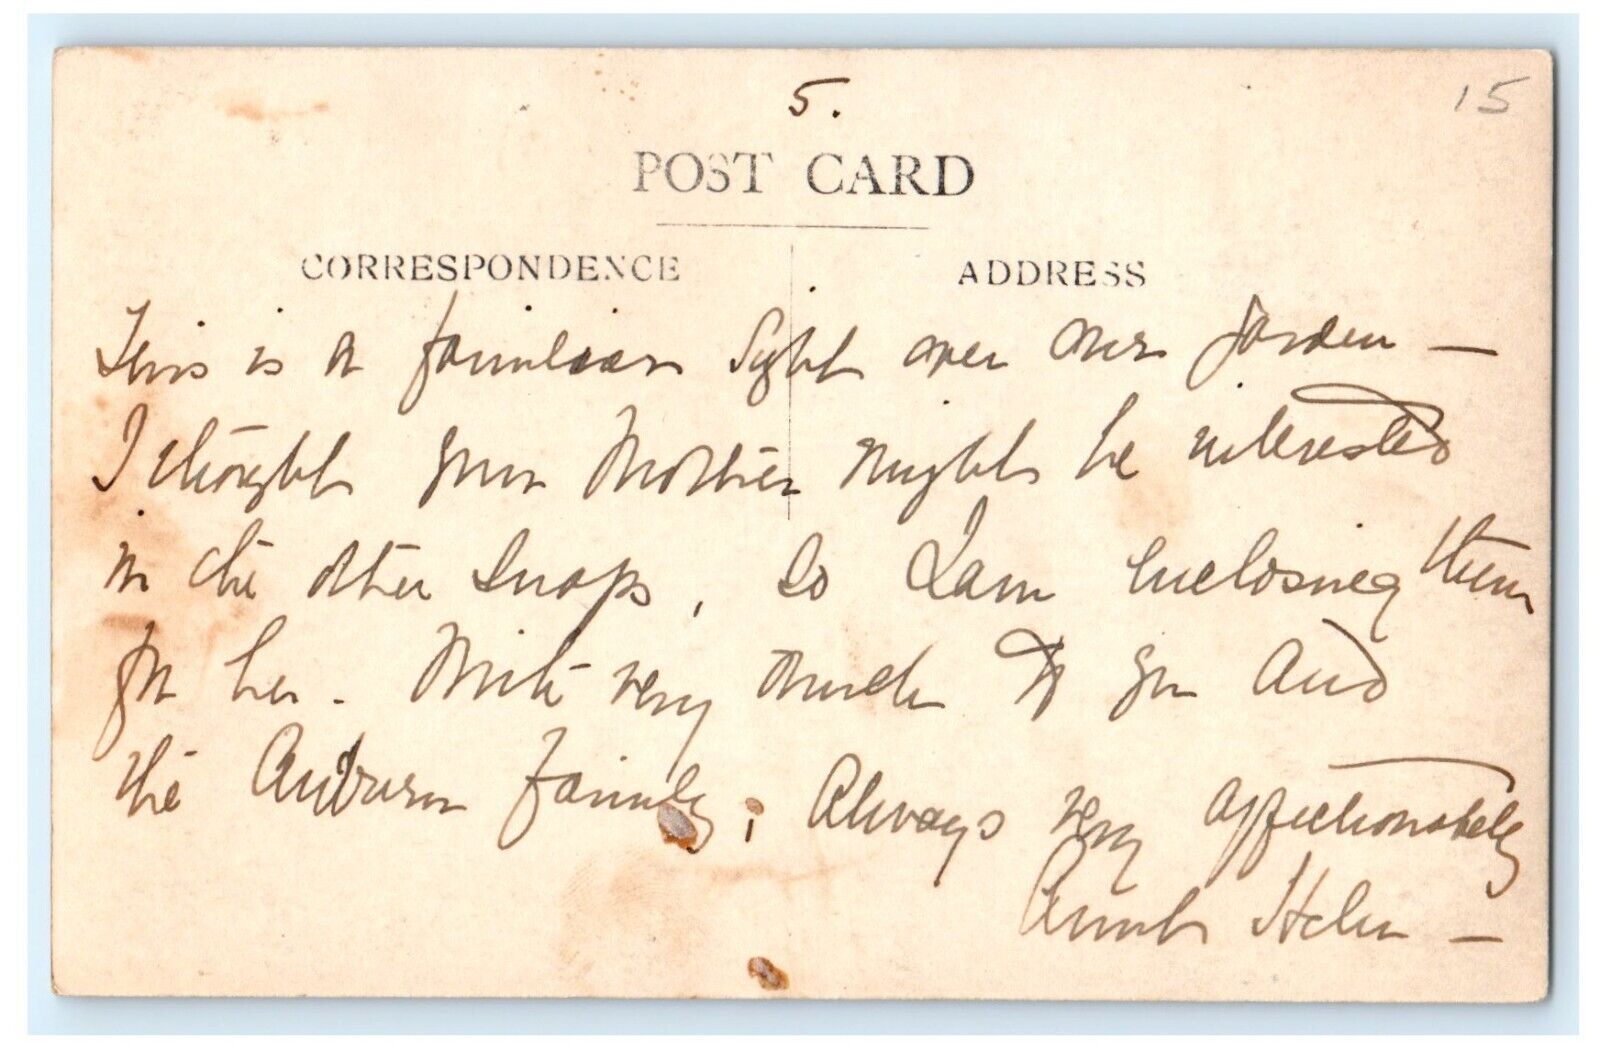 5.
15
POST CARD
CORRESPONDENCE
ADDRESS
This is a familiar sight over our garden —
I thought your Mother might be interested
in the other snaps, so I am enclosing them
for her. Much very much to you and
the Auburn Family, Always very affectionately
Aunt Helen —